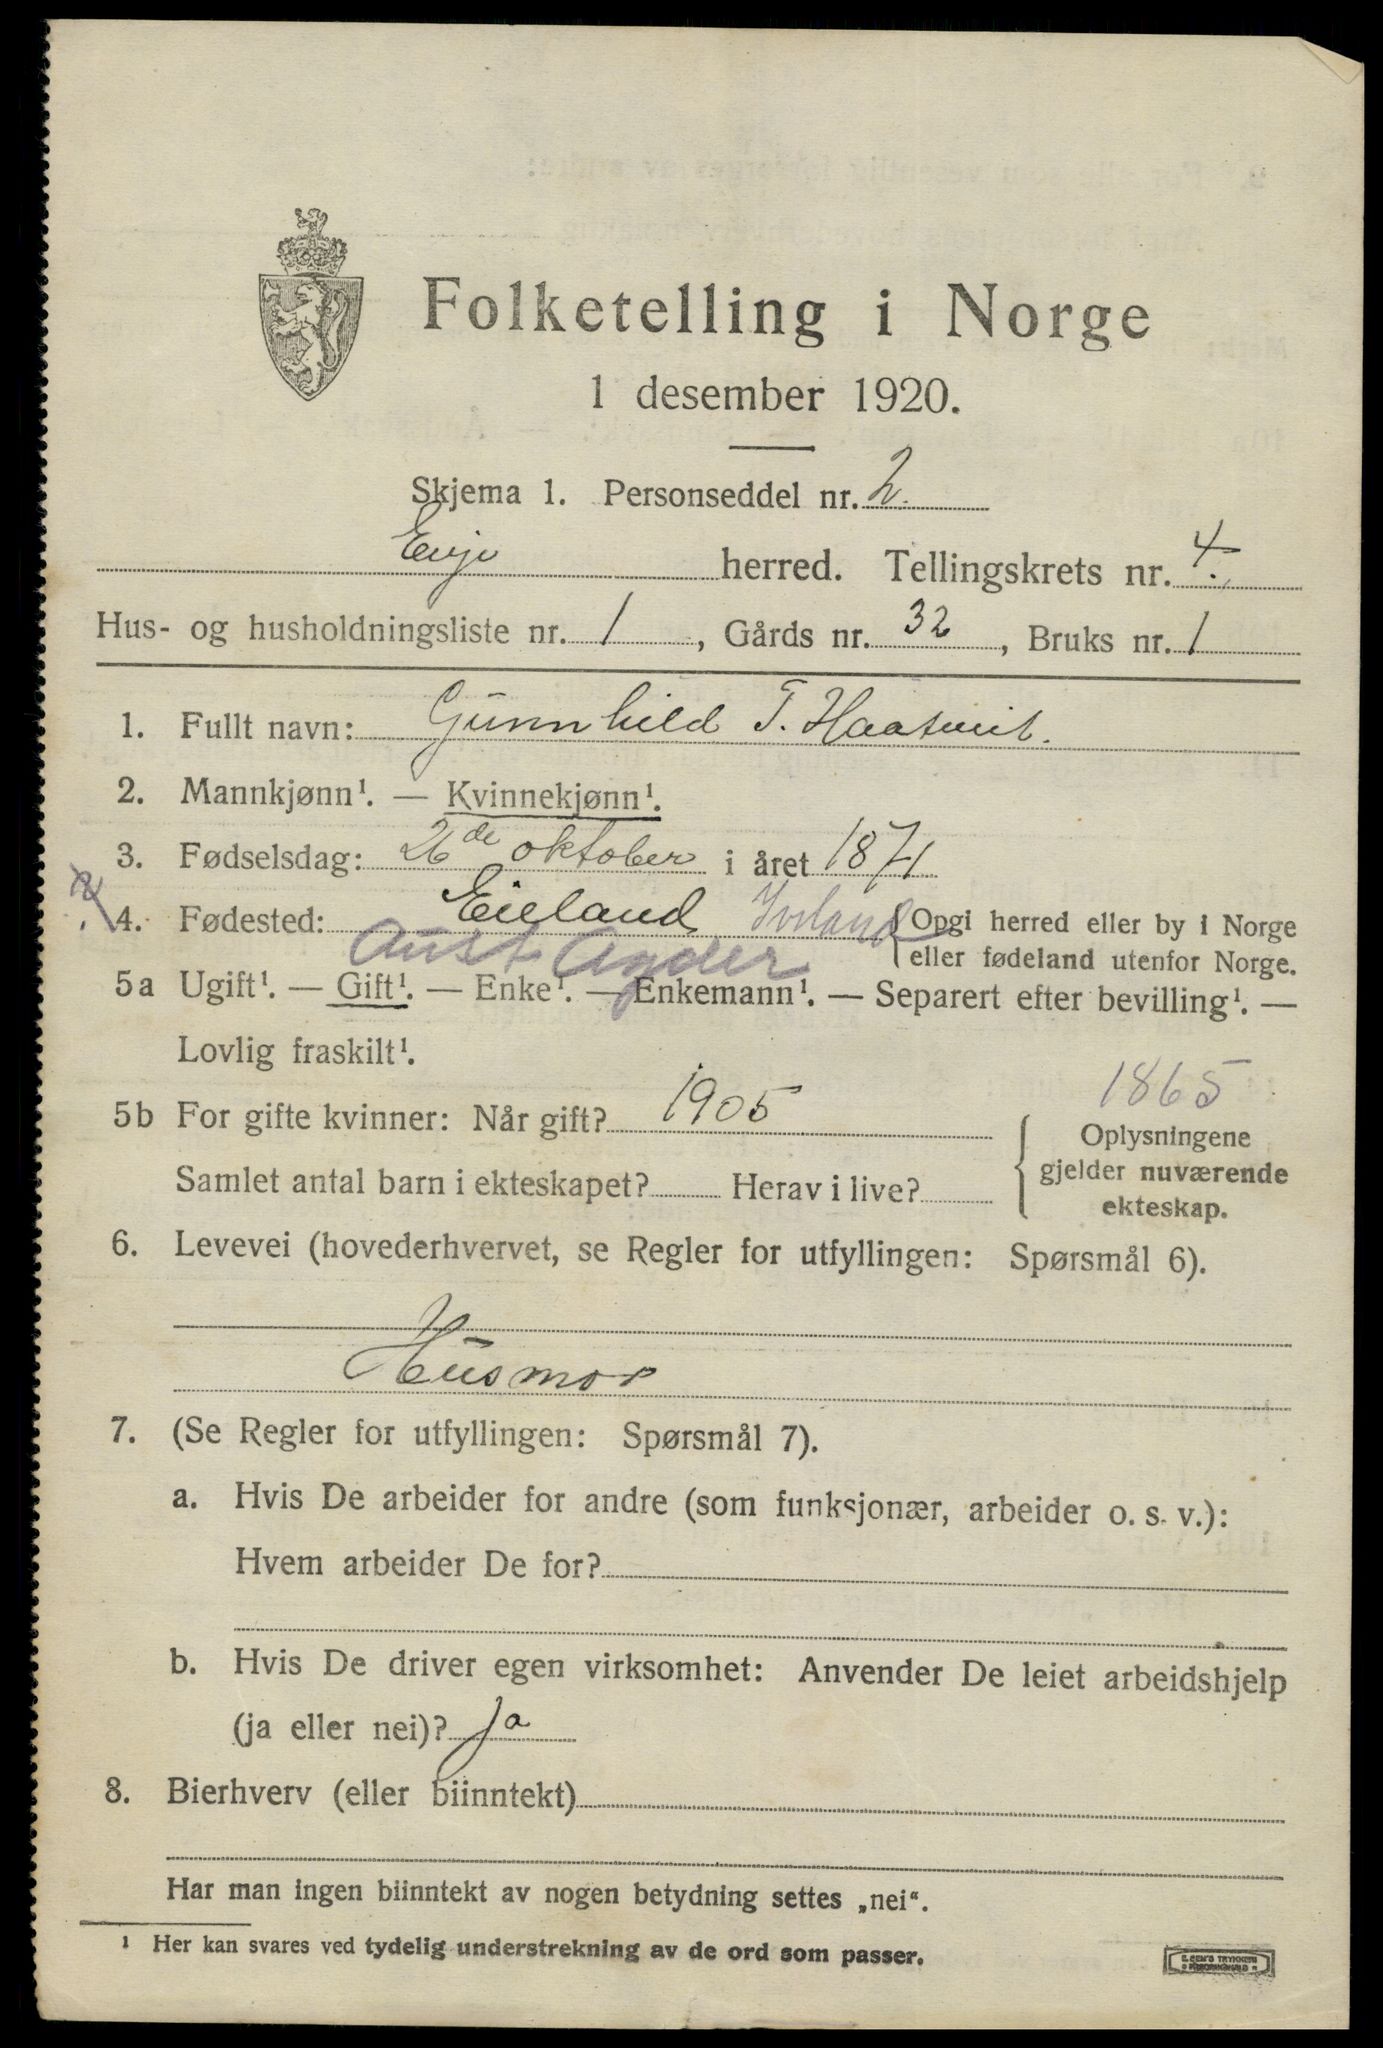 Folketelling i Norge
1 desember 1920.
Skjema 1. Personseddel nr. 2.
Evje herred. Tellingskrets nr. 4.
Hus- og husholdningsliste nr. 1, Gårds nr. 32, Bruks nr. 1
1. Fullt navn: Gunnhild T. Haatveit.
2. Mannkjønn¹. — Kvinnekjønn¹.
3. Fødselsdag: 26de oktober i året 1871
4. Fødested: Eieland Iveland {Opgi herred eller by i Norge
Aust Agder eller fødeland utenfor Norge.
5a Ugift¹. — Gift¹. — Enke¹. — Enkemann¹. — Separert efter bevilling¹. —
Lovlig fraskilt¹.
1865
5b For gifte kvinner: Når gift? 1905 Oplysningene
gjelder nuværende
Samlet antal barn i ekteskapet? Herav i live?
ekteskap.
6. Levevei (hovederhvervet, se Regler for utfyllingen: Spørsmål 6).
Husmor
7. (Se Regler for utfyllingen: Spørsmål 7).
a. Hvis De arbeider for andre (som funksjonær, arbeider o. s. v.):
Hvem arbeider De for?
b. Hvis De driver egen virksomhet: Anvender De leiet arbeidshjelp
(ja eller nei)? Ja
8. Bierhverv (eller biinntekt)
Har man ingen biinntekt av nogen betydning settes „nei“.
¹ Her kan svares ved tydelig understrekning av de ord som passer.